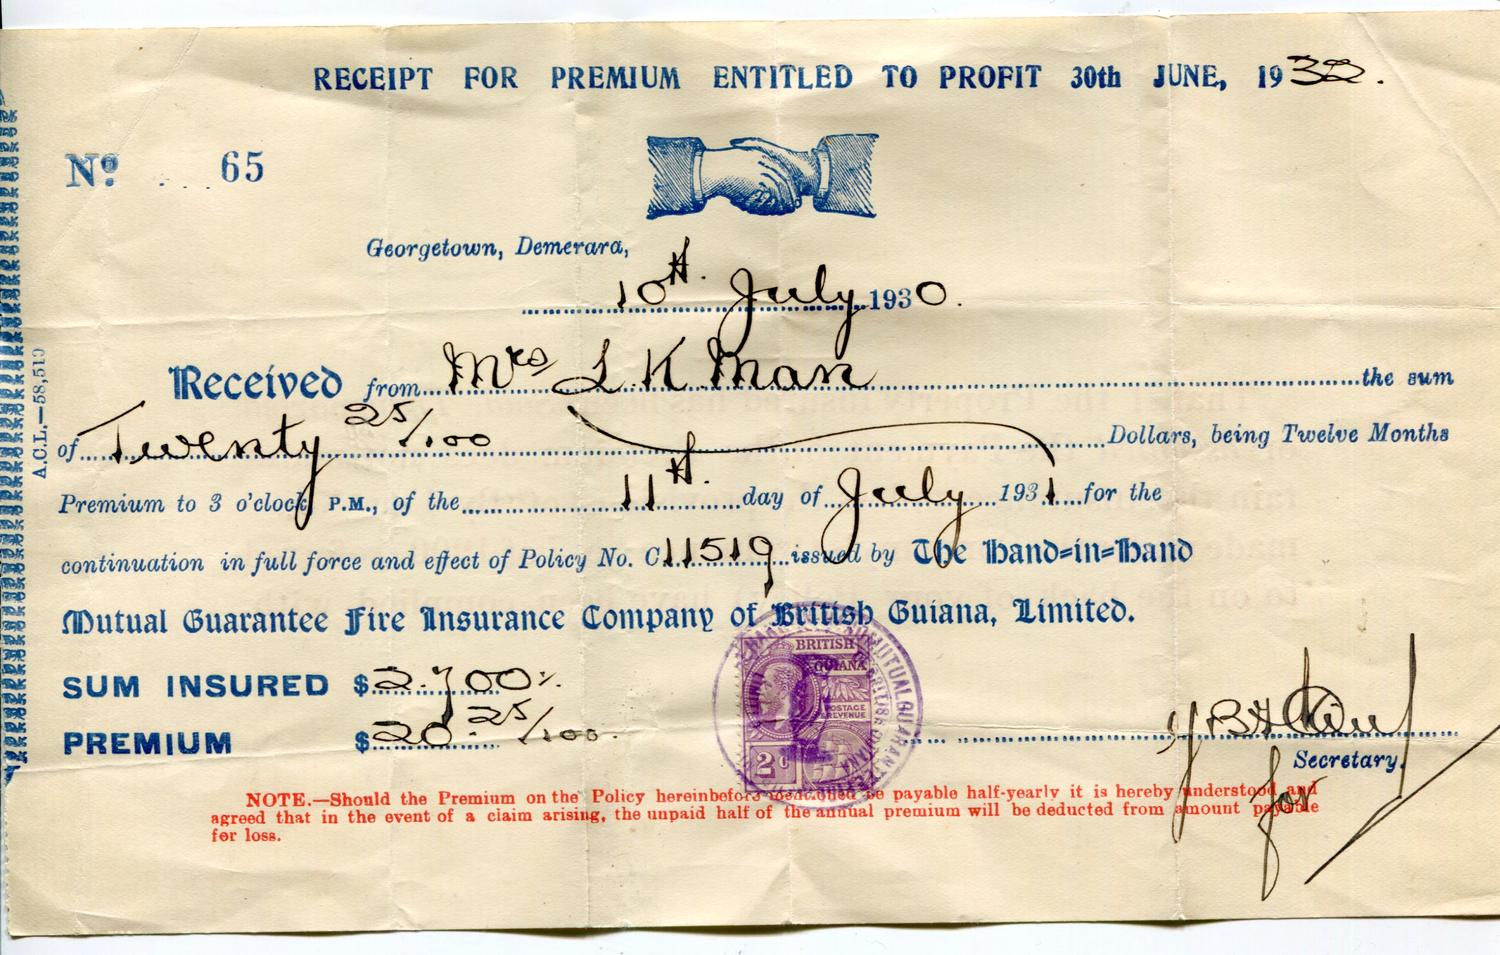 RECEIPT FOR PREMIUM ENTITLED TO PROFIT 30th JUNE, 1932.
No. 65
Georgetown, Demerara,
10th. July 1930.
Received from Mrs L K Man the sum
of Twenty 25/100 Dollars, being Twelve Months
Premium to 3 o'clock P.M., of the 11th. day of July 1931 for the
continuation in full force and effect of Policy No. C 11519 issued by The Hand=in=Hand
Mutual Guarantee Fire Insurance Company of British Guiana, Limited.
SUM INSURED $2.700
PREMIUM $20.25/100.
BRITISH
GUIANA
POSTAGE
REVENUE
2c
Secretary.
for
NOTE.—Should the Premium on the Policy hereinbefore mentioned be payable half-yearly it is hereby understood and
agreed that in the event of a claim arising, the unpaid half of the annual premium will be deducted from amount payable
for loss.
A.C.L.—58,510